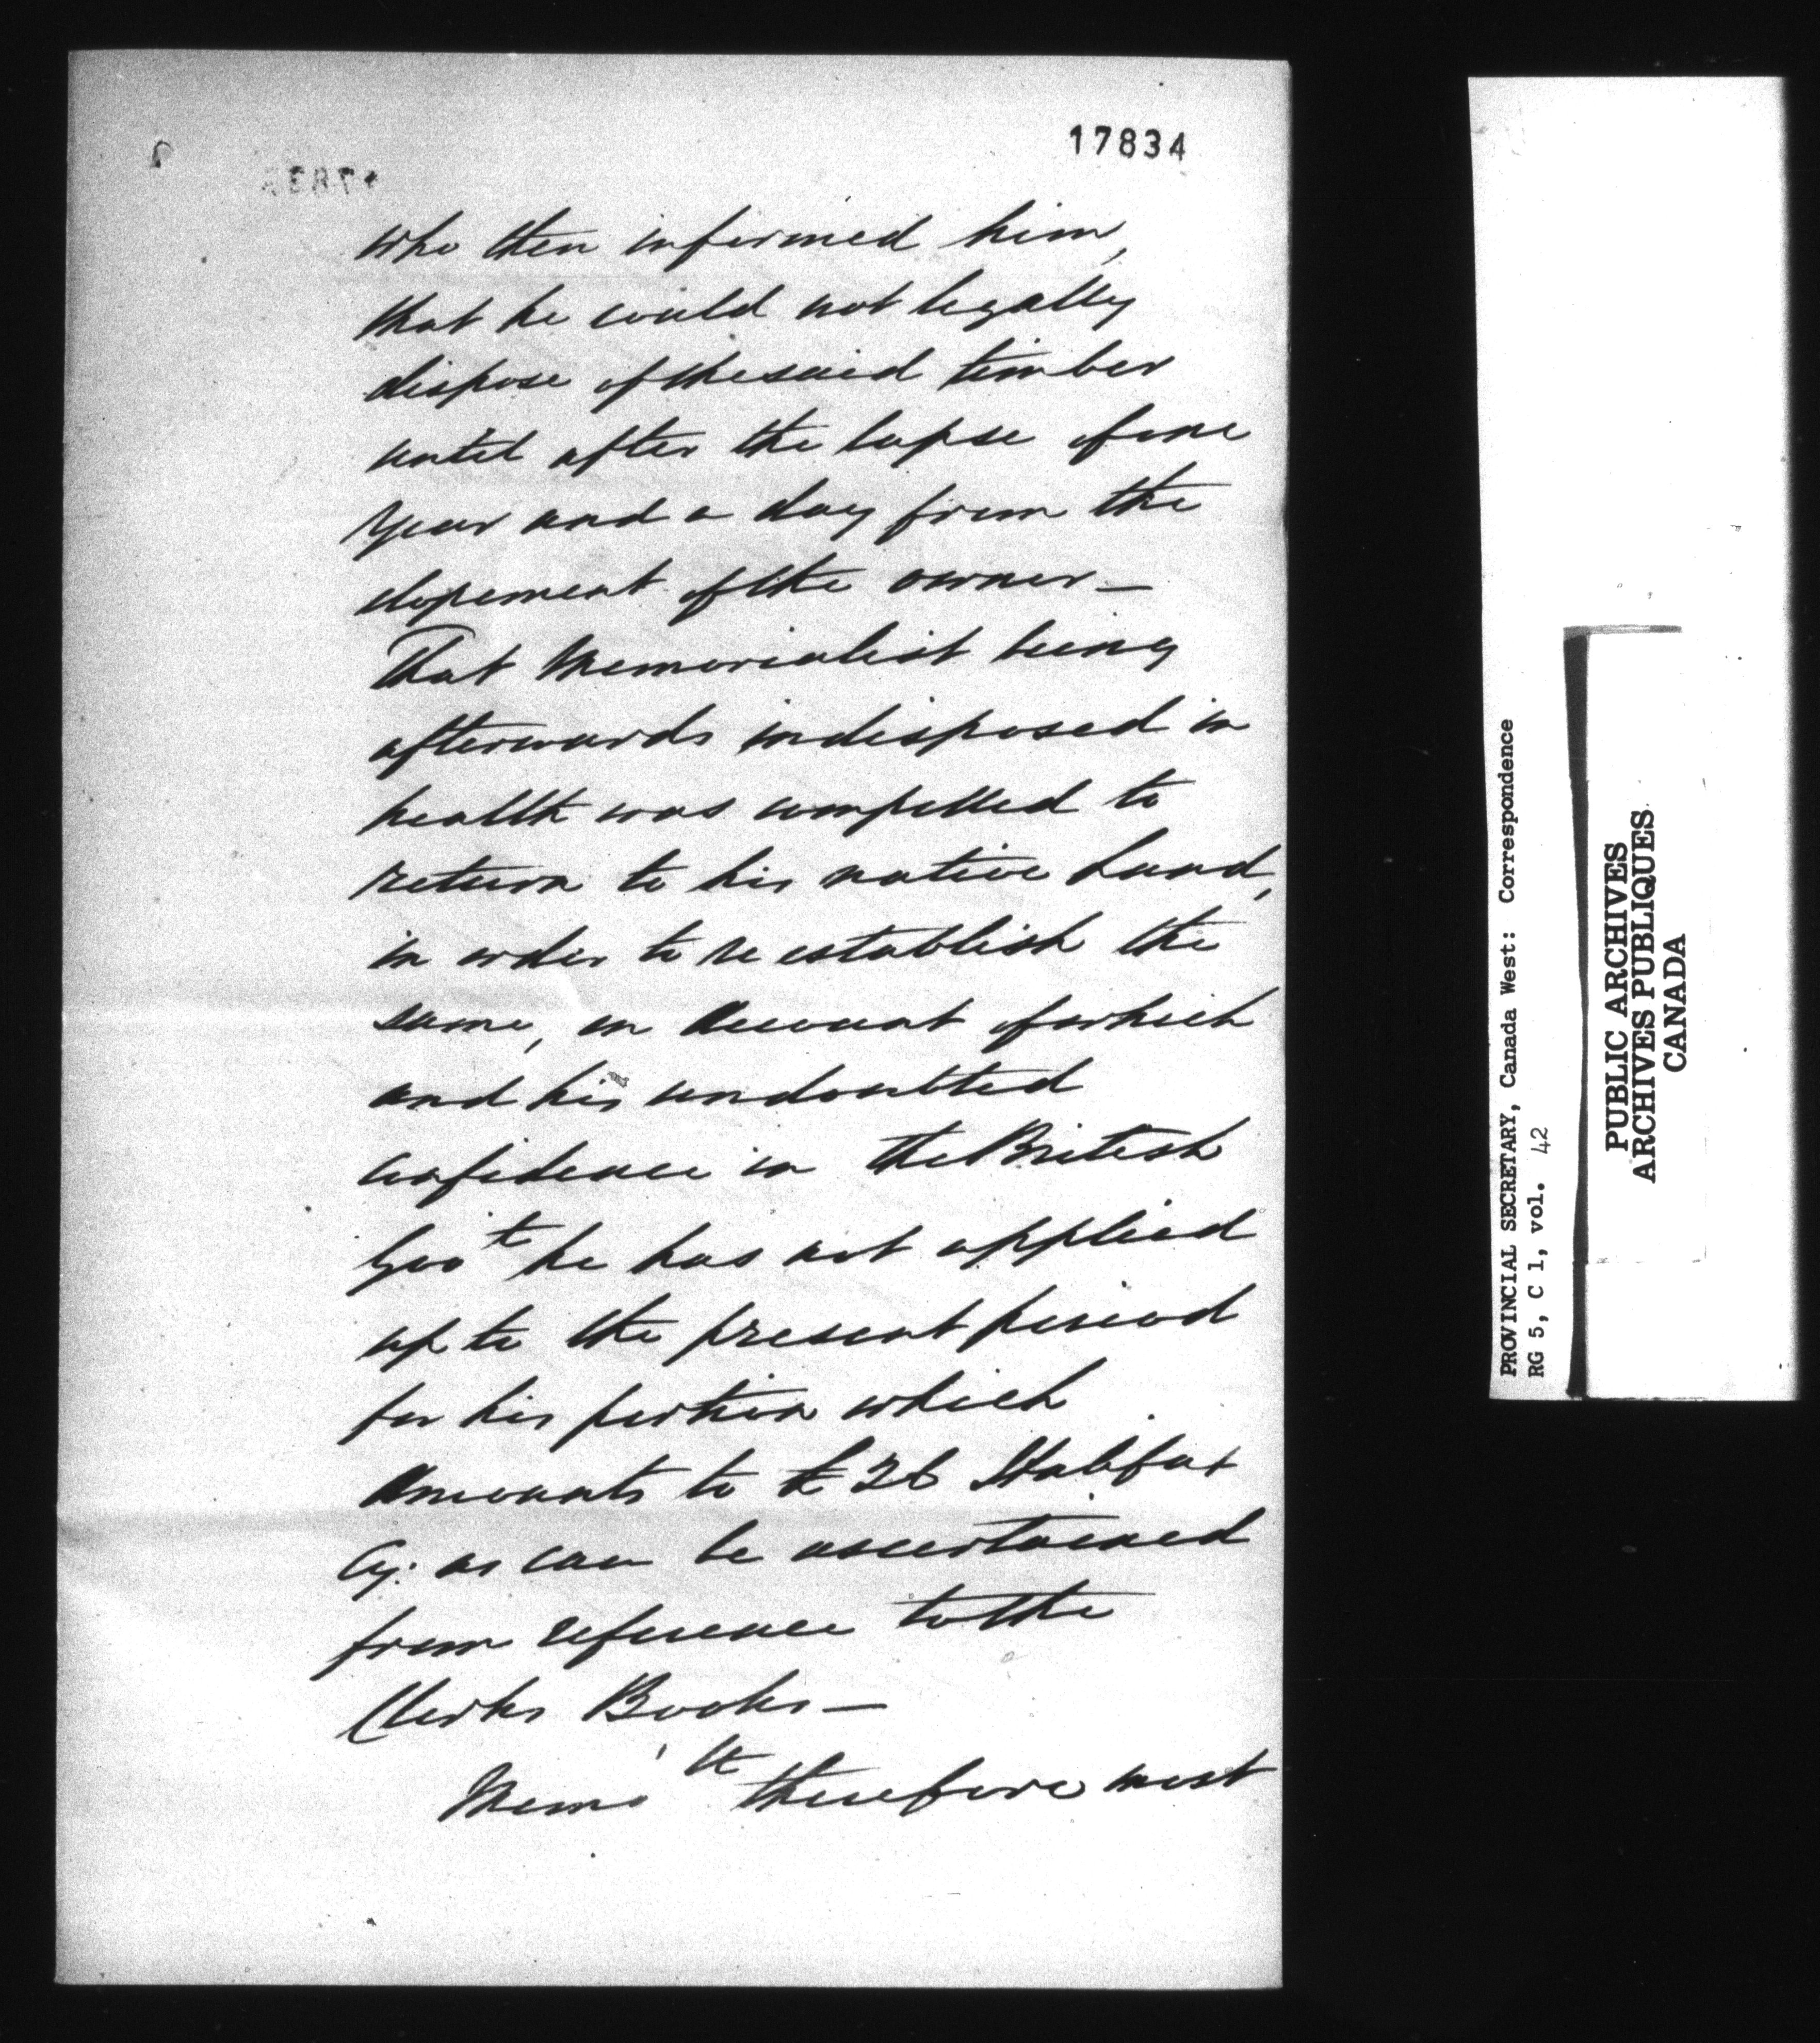 17834
who then informed him,
that he could not legally
dispose of the said timber
until after the lapse of one
Year and a day from the
elopement of the owner —
That Memorialist being
afterwards indisposed in
health was compelled to
return to his native Land,
in order to re establish the
same, on Account of which
and his undoubted
confidence in the British
Govt he has not applied
up to the present period
for his portion which
Amounts to £26 Halifax
Cy: as can be ascertained
from reference to the
Clerks Books —
Memolt therefore most
PROVINCIAL SECRETARY, Canada West: Correspondence
RG 5, C 1, vol. 42
PUBLIC ARCHIVES
ARCHIVES PUBLIQUES
CANADA